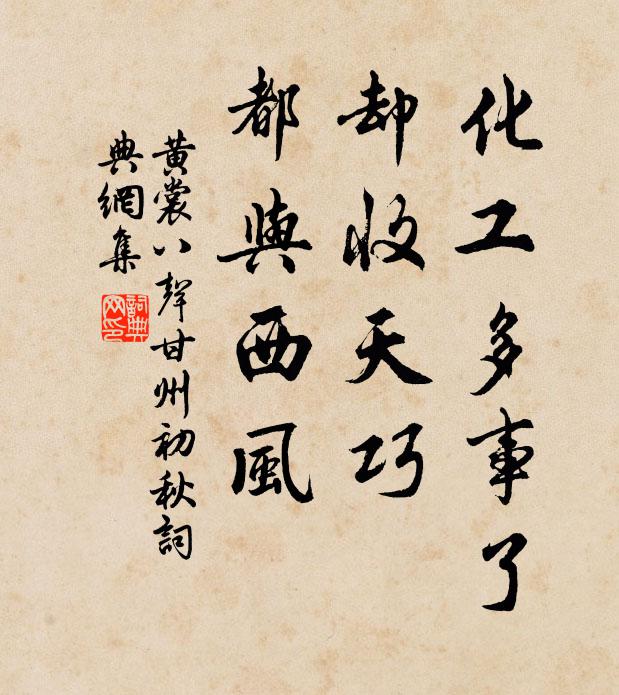 化工多事了
却收天巧
都與西風
黄裳八聲甘州初秋詞
典網集
詞典網印